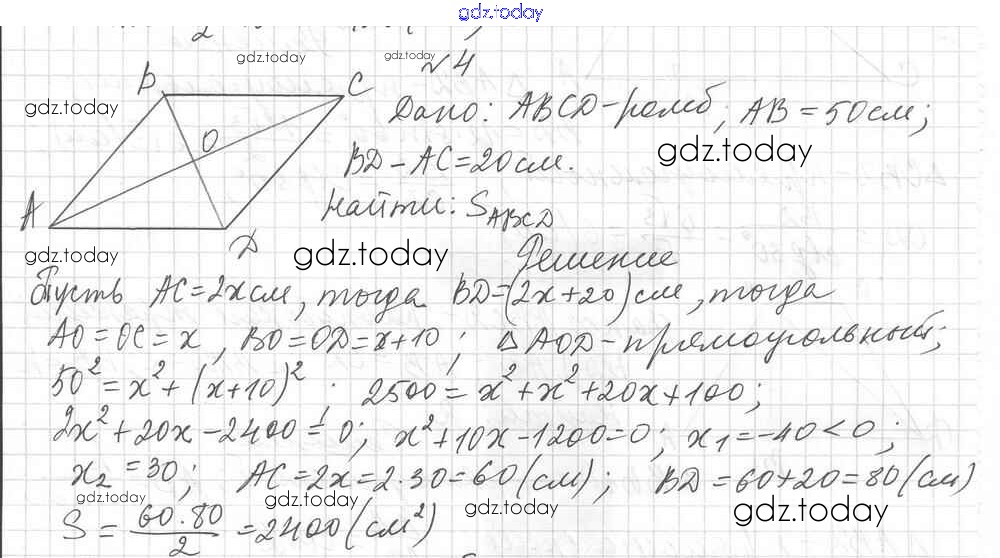 gdz.today
gdz.today gdz.today
№4
B C
gdz.today
Дано: ABCD-ромб; AB = 50 см;
O
BD - AC = 20 см.
gdz.today
A
Найти: S_ABCD
D
gdz.today gdz.today
Решение
Пусть AC = 2x см, тогда BD = (2x + 20) см, тогда
AO = OC = x, BO = OD = x + 10; △AOD - прямоугольный;
50² = x² + (x + 10)²; 2500 = x² + x² + 20x + 100;
2x² + 20x - 2400 = 0; x² + 10x - 1200 = 0; x₁ = -40 < 0;
x₂ = 30; AC = 2x = 2·30 = 60 (см); BD = 60 + 20 = 80 (см)
gdz.today gdz.today gdz.today gdz.today
S = 60·80/2 = 2400 (см²)